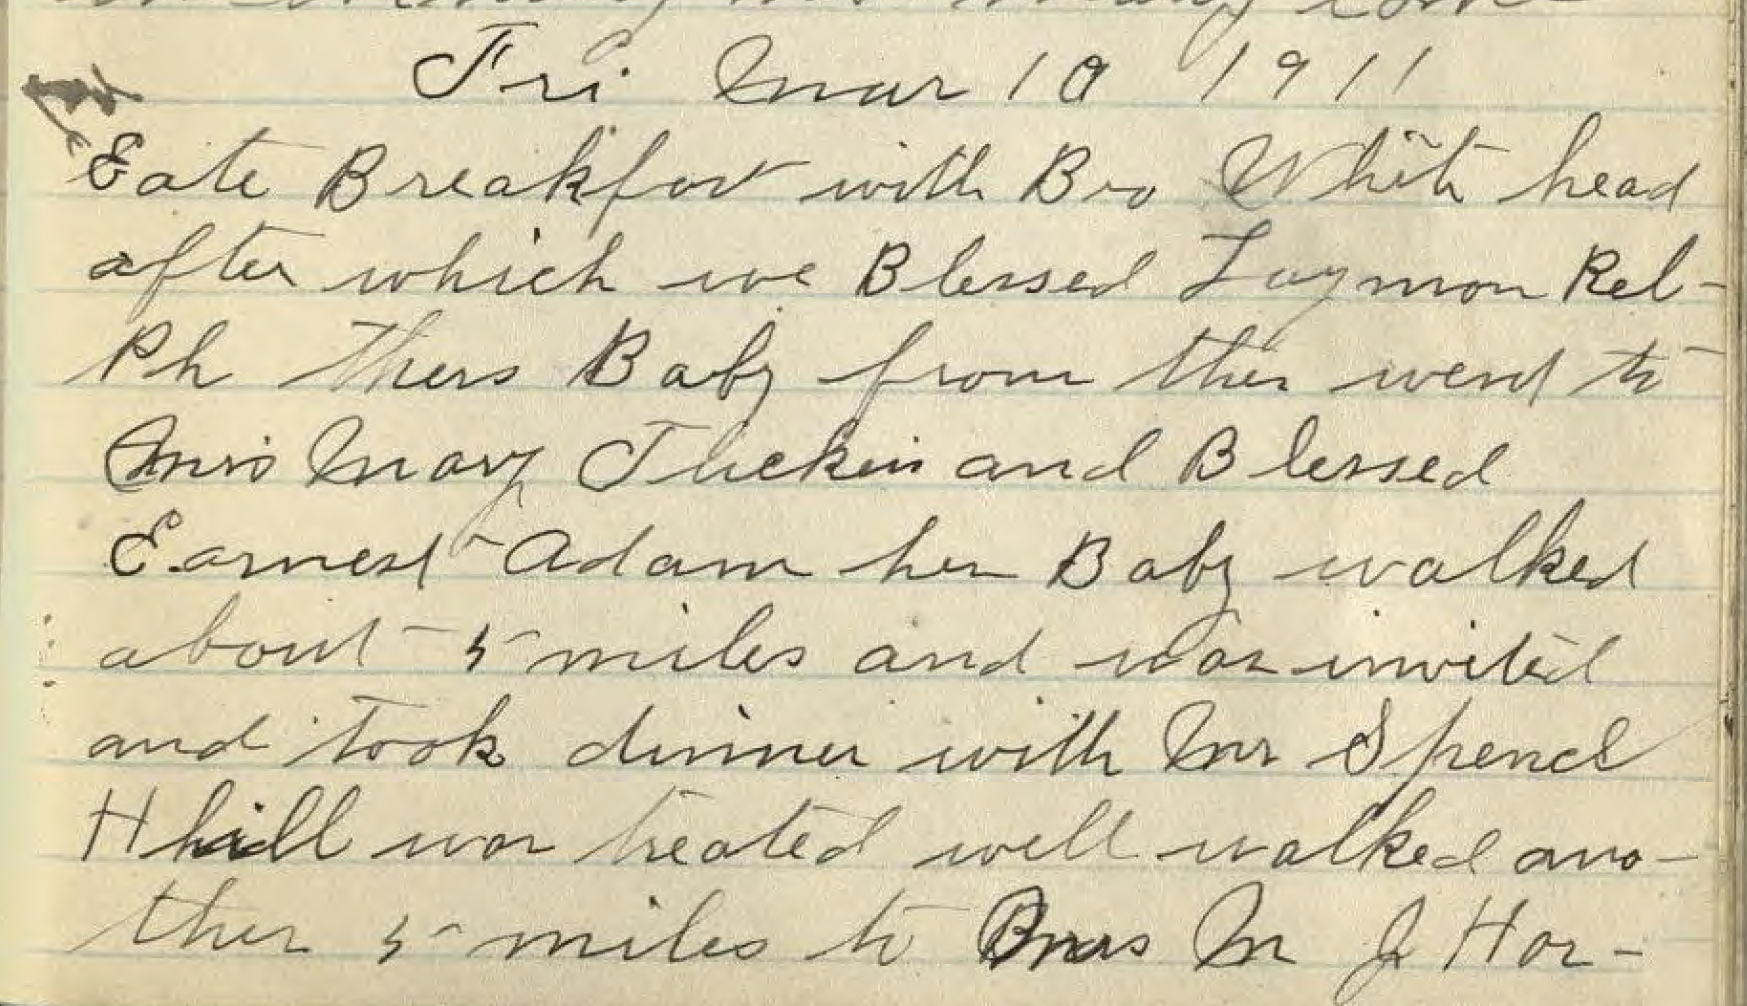 Fri Mar 10 1911
Eate Breakfast with Bro White head
after which we Blessed Laymon Rel-
Ph thers Baby from ther went to
Mrs Mary Tucker and Blessed
Earnest Adam her Baby walked
about 5 miles and was invited
and took dinner with Mr Spence
Hhill was treated well walked ano-
ther 5 miles to Mrs M J Hor-